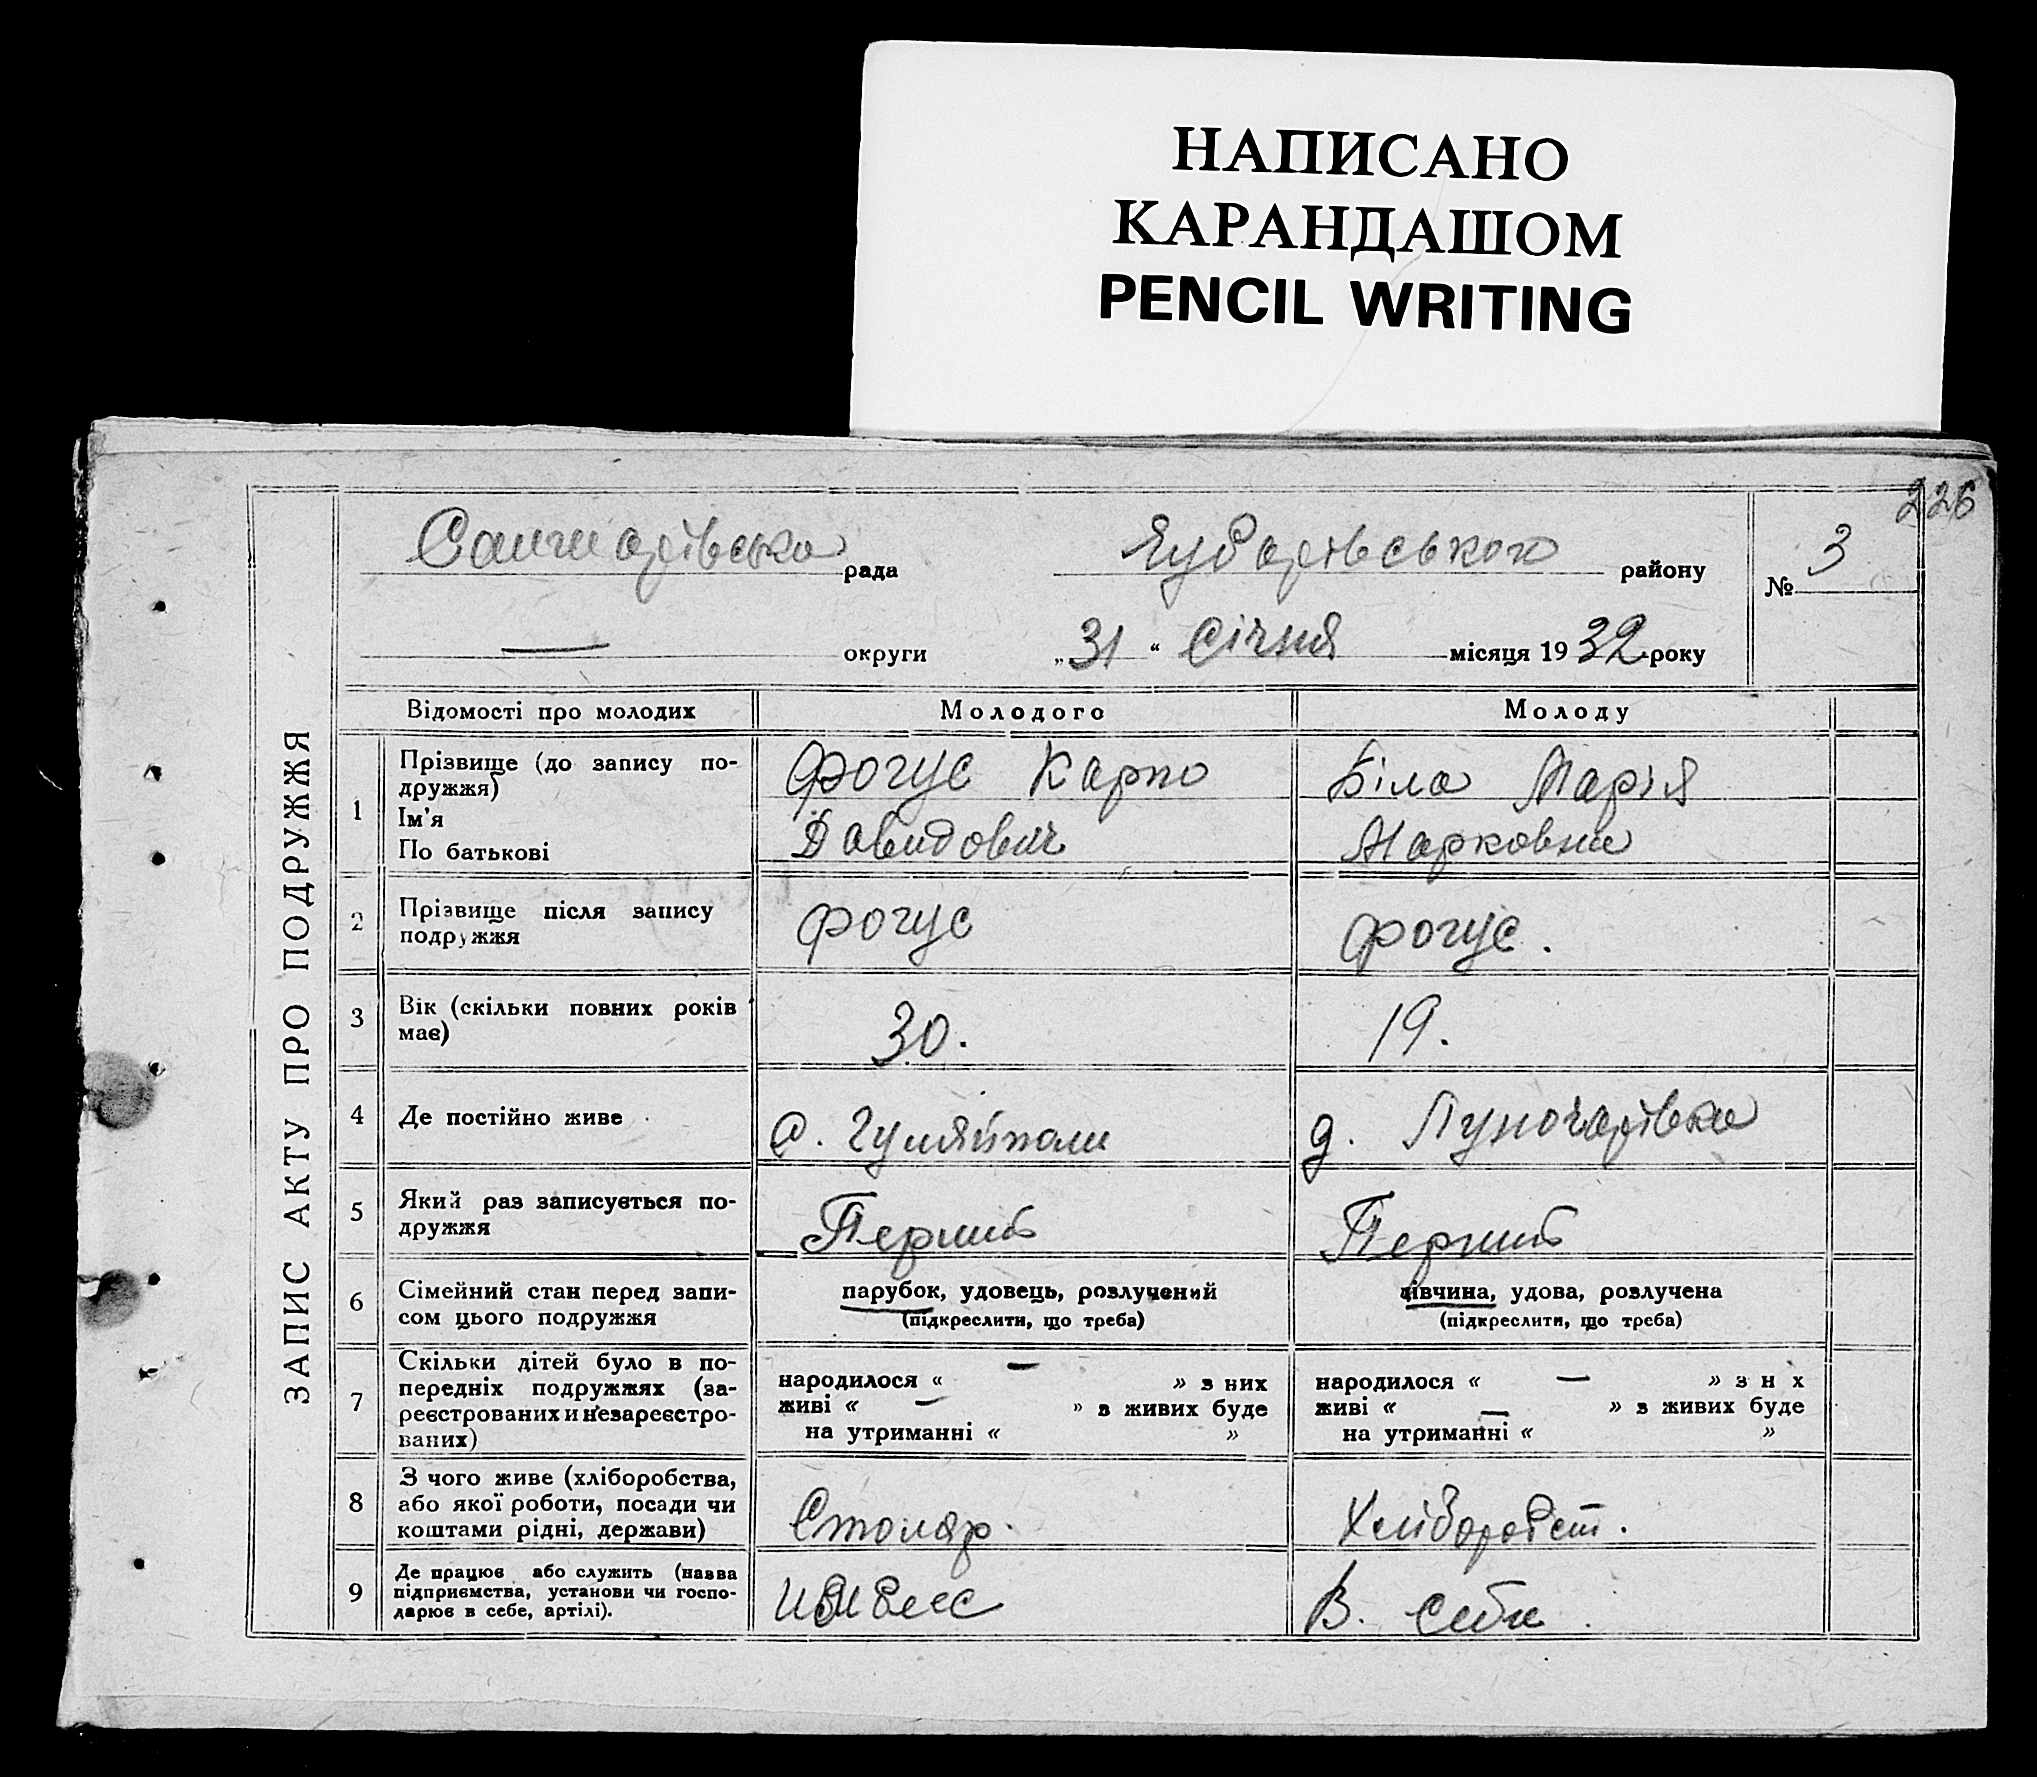 НАПИСАНО
КАРАНДАШОМ
PENCIL WRITING
226
рада
району
№ 3
— округи
„31“ Січня місяця 1932 року
ЗАПИС АКТУ ПРО ПОДРУЖЖЯ
Відомості про молодих
Молодого
Молоду
1
Прізвище (до запису по-
дружжя)
Ім'я
По батькові
Фогус Карпо
Давидович
Біла Марія
Марковна
2
Прізвище після запису
подружжя
Фогус
Фогус.
3
Вік (скільки повних років
має)
30.
19.
4
Де постійно живе
с. Гуляйполи
д. Луночарівка
5
Який раз записується по-
дружжя
Перший
Перший
6
Сімейний стан перед запи-
сом цього подружжя
парубок, удовець, розлучений
(підкреслити, що треба)
дівчина, удова, розлучена
(підкреслити, що треба)
7
Скільки дітей було в по-
передніх подружжях (за-
реєстрованих и незареєстро-
ваних)
народилося « — » з них
живі « — » з живих буде
на утриманні « »
народилося « — » з н х
живі « — » з живих буде
на утриманні « »
8
З чого живе (хліборобства,
або якої роботи, посади чи
коштами рідні, держави)
Столяр.
Хліборобст.
9
Де працює або служить (назва
підприємства, установи чи госпо-
дарює в себе, артілі).
В. себе.